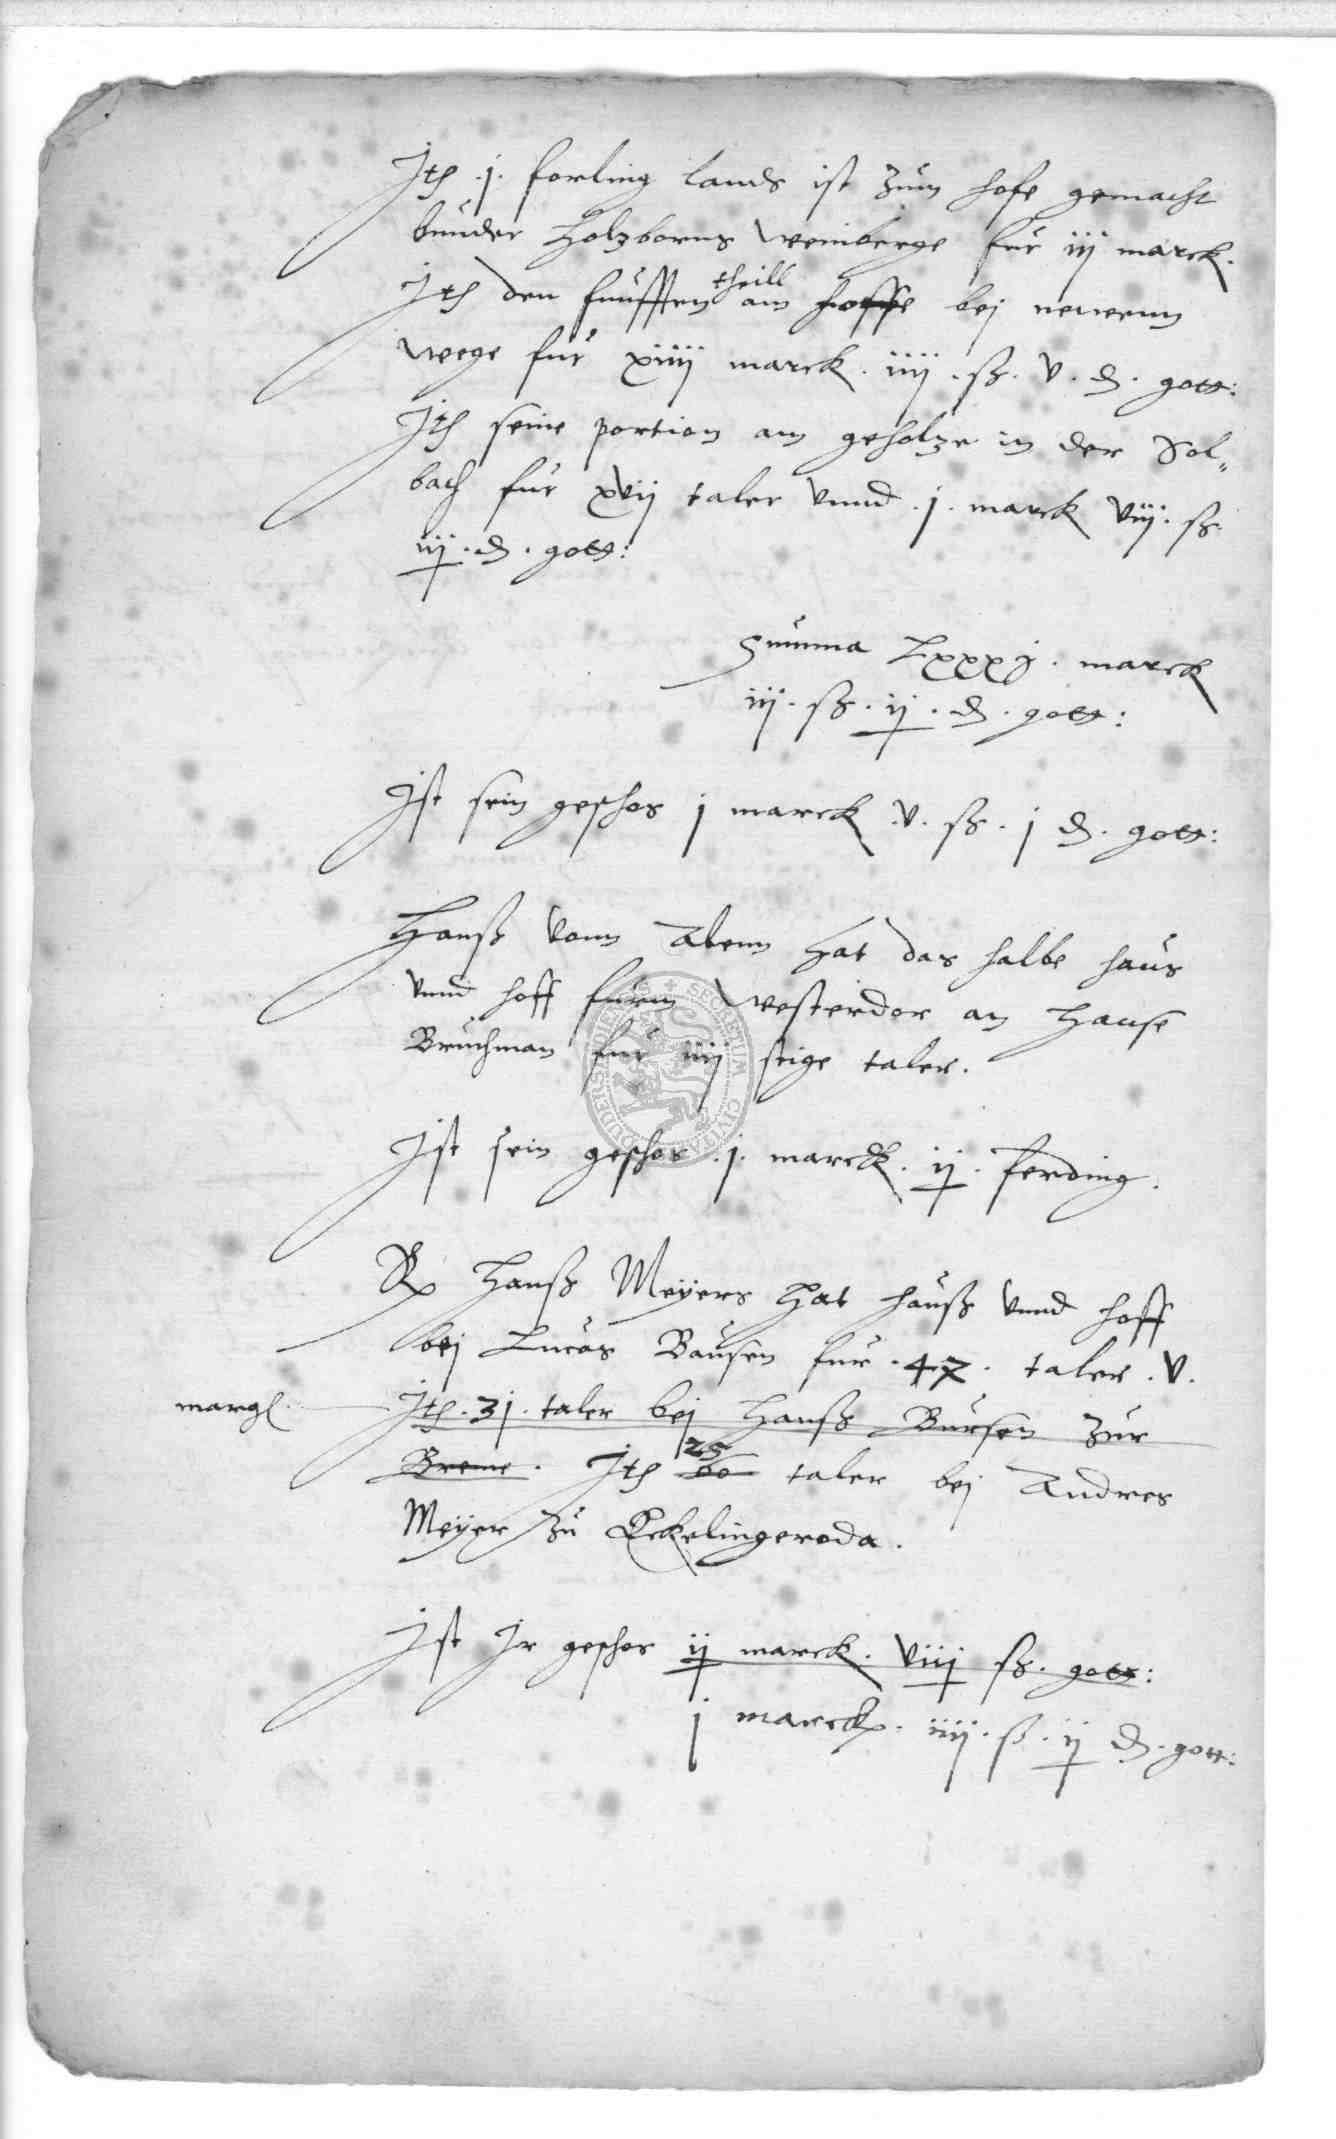 Jtē .j. forling lands ist zum hofe gemacht
bunder Holzborns weinberge fur iij marck.
Jtē den funfften theill am hoffe bej neuenn
wege fur xiiij marck . iiij . ß . v . ₰ . gott:
Jtē seine portion am geholze in der Sol„
bach fur xvij taler vnnd .j. marck viij . ß
iij . ₰ . gott:
Summa Lxxxj . marck
iij . ß . ij . ₰ . gott:
Jst sein geschos j marck .v. ß . j ₰ . gott:
Hanß vonn Alenn hat das halbe haus
vnnd hoff furm Westerdor an Hanse
Bruchman fur iiij stige taler.
Jst sein geschos .j. marck . ij . ferding.
Hanß Meyers hat hauß vnnd hoff
bej Lucas Bausen fur .47. taler . v.
margl.
Jtē . 31 . taler bej Hanß Bursen zur
Breme . Jtē 25 60 taler bej Andres
Meyer zu Eckelingeroda.
Jst Jr geschos ij marck . viij ß . gott:
j marck . iiij . ß . ij ₰ . gott:
SECRETUM CIVITATIS DUDERSTADIENSIS